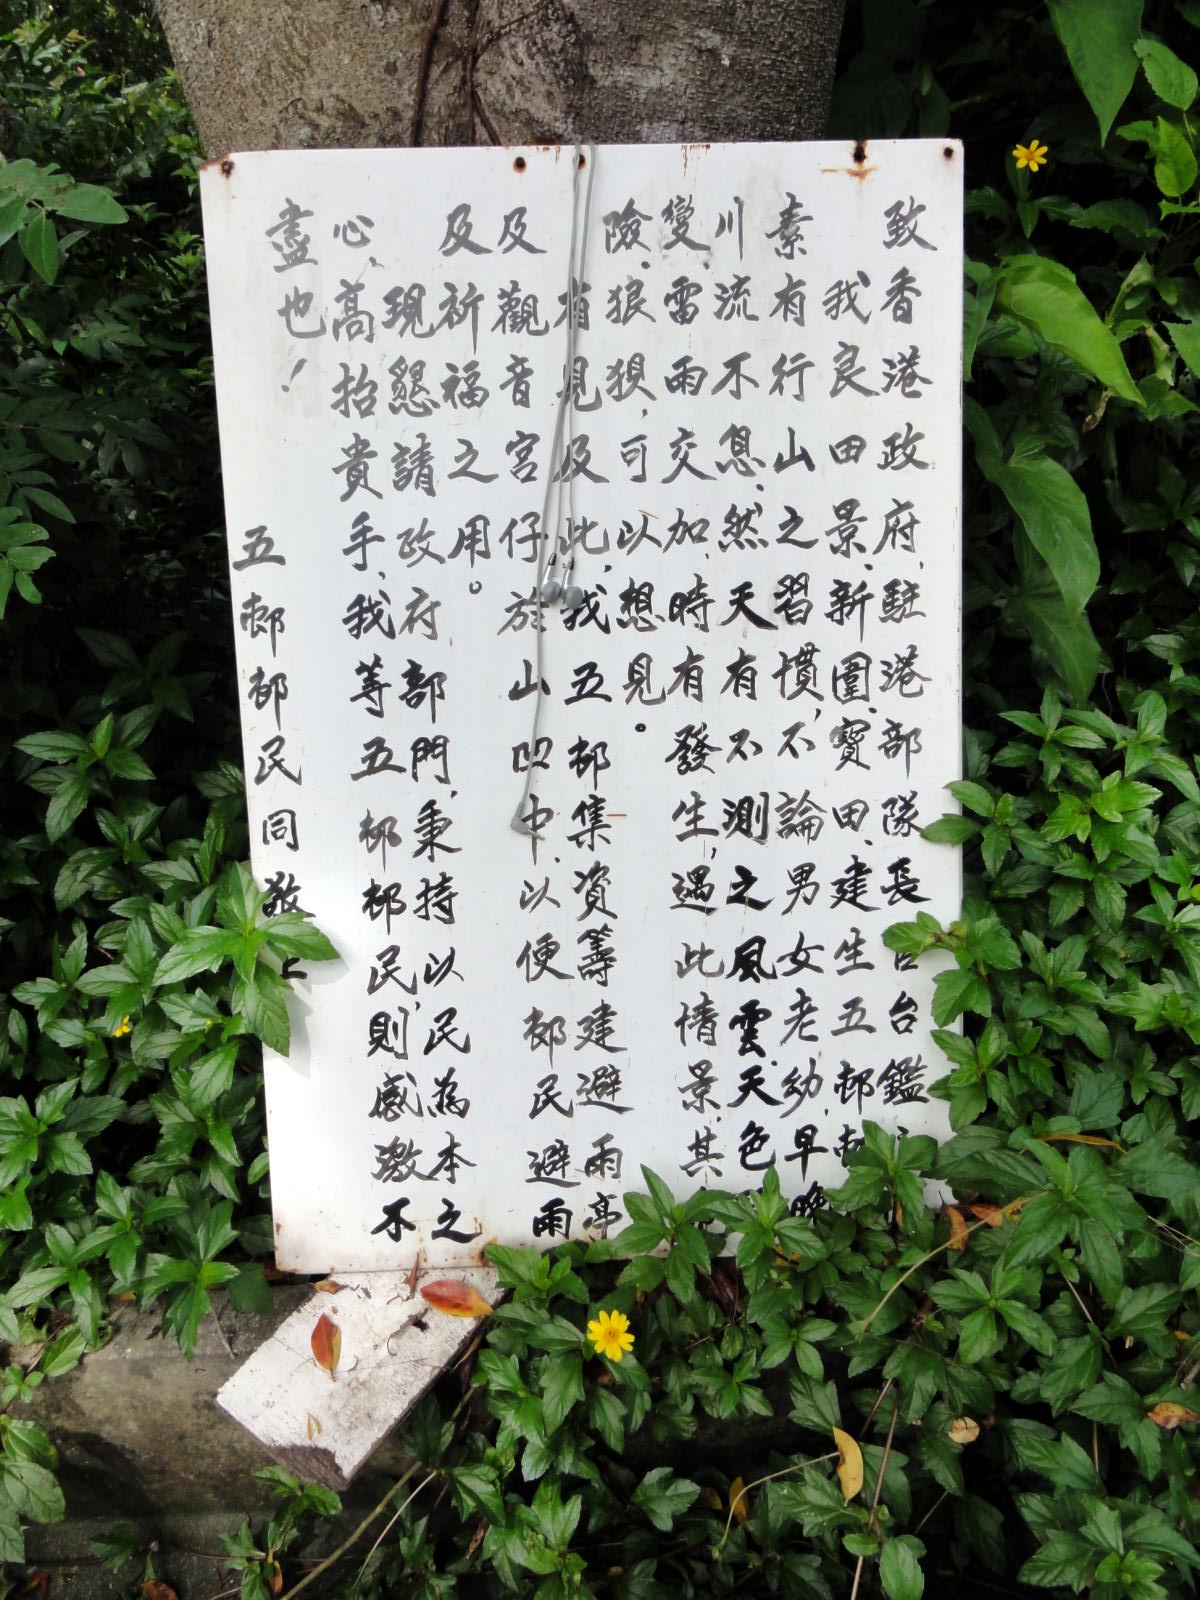 致香港政府、駐港部隊長官台鑑
我良田景、新圍、寶田、建生五邨邨
素有行山之習慣,不論男女老幼、早晚
川流不息、然天有不測之風雲、天色
變、雷雨交加、時有發生,遇此情景、其
險、狼狽,可以想見。
有見及此,我五邨集資籌建避雨亭
及觀音宮仔於山凹中、以便邨民避雨
及祈福之用。
現懇請政府部門,秉持以民為本之
心,高抬貴手、我等五邨邨民,則感激不
盡也!
五邨邨民同敬上